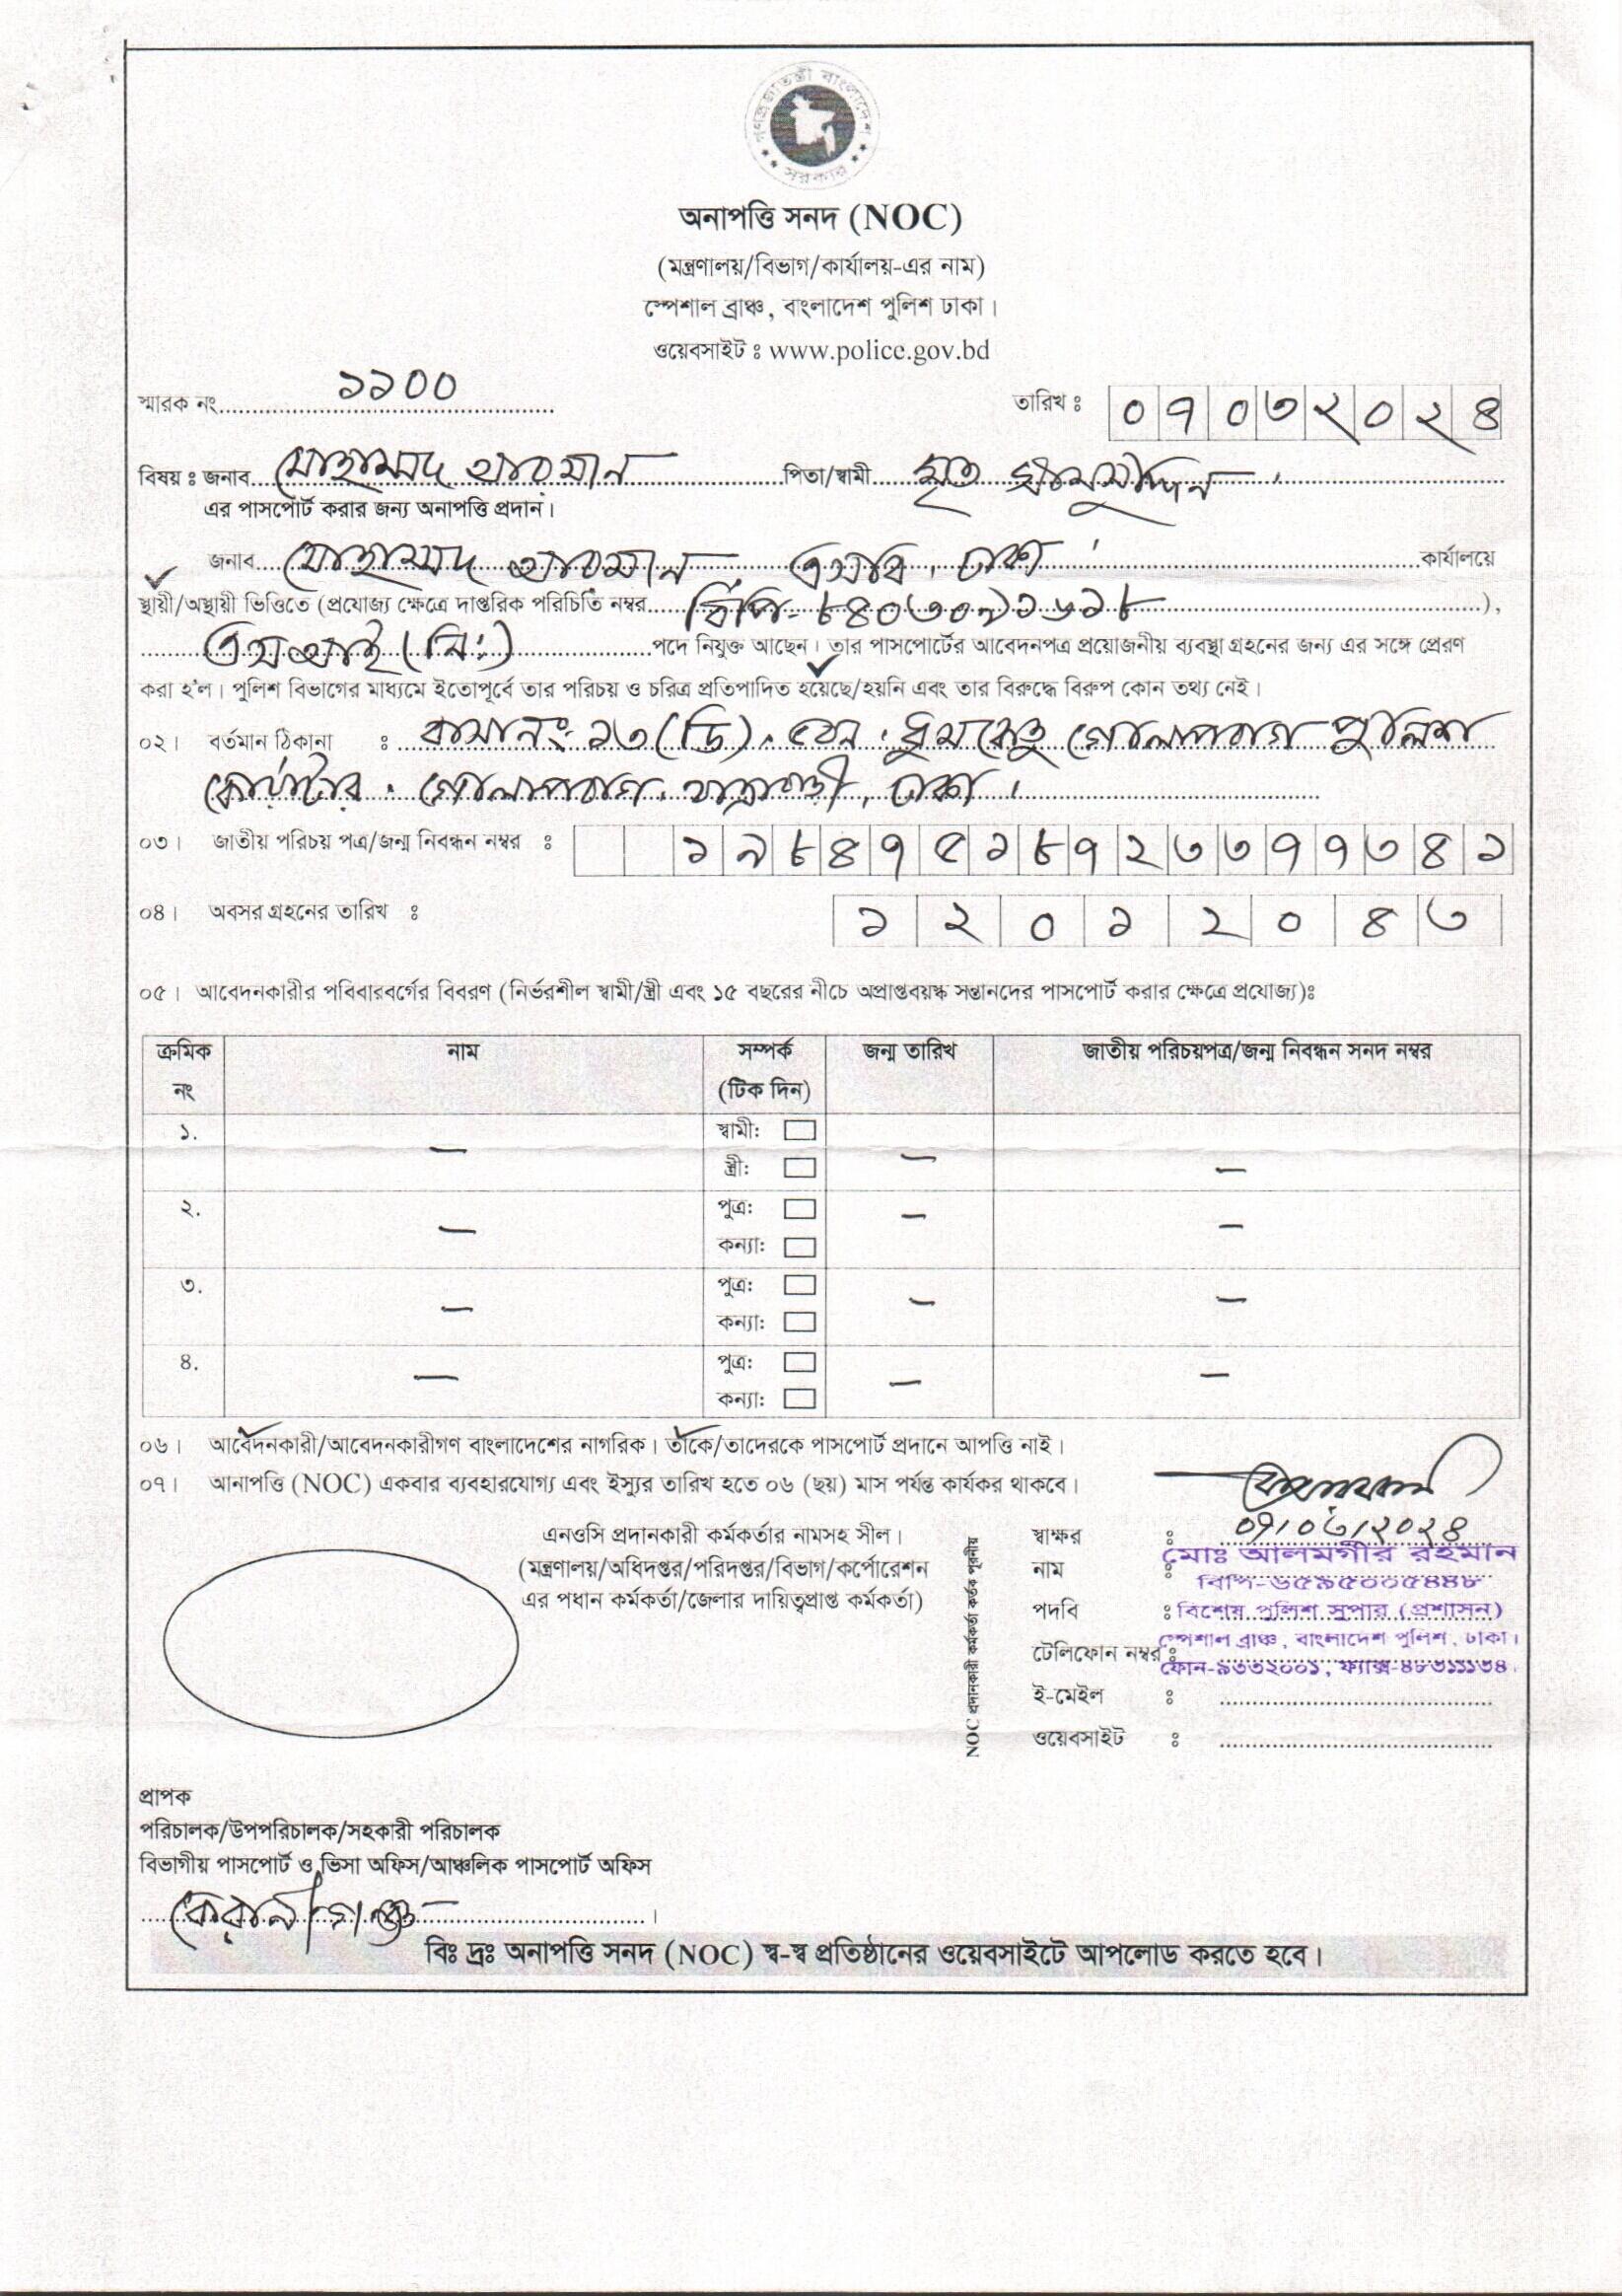 গণপ্রজাতন্ত্রী বাংলাদেশ সরকার
অনাপত্তি সনদ (NOC)
(মন্ত্রণালয়/বিভাগ/কার্যালয়-এর নাম)
স্পেশাল ব্রাঞ্চ, বাংলাদেশ পুলিশ ঢাকা।
ওয়েবসাইট ঃ www.police.gov.bd
স্মারক নং ১১০০ তারিখ ঃ ০৭০৩২০২৪
বিষয় ঃ জনাব মোহাম্মদ আরমান পিতা/স্বামী মৃত
এর পাসপোর্ট করার জন্য অনাপত্তি প্রদান।
জনাব মোহাম্মদ আরমান, এসবি, ঢাকা। কার্যালয়ে
স্থায়ী/অস্থায়ী ভিত্তিতে (প্রযোজ্য ক্ষেত্রে দাপ্তরিক পরিচিতি নম্বর বিপি-৮৪০৩০৯১৬১৮ ),
এএসআই (নিঃ) পদে নিযুক্ত আছেন। তার পাসপোর্টের আবেদনপত্র প্রয়োজনীয় ব্যবস্থা গ্রহনের জন্য এর সঙ্গে প্রেরণ
করা হ'ল। পুলিশ বিভাগের মাধ্যমে ইতোপূর্বে তার পরিচয় ও চরিত্র প্রতিপাদিত হয়েছে/হয়নি এবং তার বিরুদ্ধে বিরুপ কোন তথ্য নেই।
০২। বর্তমান ঠিকানা ঃ বাসা নং- ১৩ (ডি), ধুমকেতু গোলাপবাগ পুলিশ
কোয়ার্টার, গোলাপবাগ, যাত্রাবাড়ী, ঢাকা।
০৩। জাতীয় পরিচয় পত্র/জন্ম নিবন্ধন নম্বর ঃ ১৯৮৪৭৫১৮৭২৩৩৭৭৩৪১
০৪। অবসর গ্রহনের তারিখ ঃ ১২০১২০৪৩
০৫। আবেদনকারীর পবিবারবর্গের বিবরণ (নির্ভরশীল স্বামী/স্ত্রী এবং ১৫ বছরের নীচে অপ্রাপ্তবয়স্ক সন্তানদের পাসপোর্ট করার ক্ষেত্রে প্রযোজ্য)ঃ
ক্রমিক নং নাম সম্পর্ক (টিক দিন) জন্ম তারিখ জাতীয় পরিচয়পত্র/জন্ম নিবন্ধন সনদ নম্বর
১. — স্বামী: — —
স্ত্রী:
২. — পুত্র: — —
কন্যা:
৩. — পুত্র: — —
কন্যা:
৪. — পুত্র: — —
কন্যা:
০৬। আবেদনকারী/আবেদনকারীগণ বাংলাদেশের নাগরিক। তাঁকে/তাদেরকে পাসপোর্ট প্রদানে আপত্তি নাই।
০৭। আনাপত্তি (NOC) একবার ব্যবহারযোগ্য এবং ইস্যুর তারিখ হতে ০৬ (ছয়) মাস পর্যন্ত কার্যকর থাকবে।
এনওসি প্রদানকারী কর্মকর্তার নামসহ সীল।
(মন্ত্রণালয়/অধিদপ্তর/পরিদপ্তর/বিভাগ/কর্পোরেশন
এর পধান কর্মকর্তা/জেলার দায়িত্বপ্রাপ্ত কর্মকর্তা)
NOC প্রদানকারী কর্মকর্তা কর্তৃক পূরনীয়
স্বাক্ষর ঃ ০৭/০৩/২০২৪
নাম ঃ মোঃ আলমগীর রহমান
বিপি-৬৫৯৫০০৫৪৪৮
পদবি ঃ বিশেষ পুলিশ সুপার (প্রশাসন)
স্পেশাল ব্রাঞ্চ, বাংলাদেশ পুলিশ, ঢাকা।
টেলিফোন নম্বর ঃ ফোন-৯৩৩২০০১, ফ্যাক্স-৪৮৩১১১৩৪
ই-মেইল ঃ
ওয়েবসাইট ঃ
প্রাপক
পরিচালক/উপপরিচালক/সহকারী পরিচালক
বিভাগীয় পাসপোর্ট ও ভিসা অফিস/আঞ্চলিক পাসপোর্ট অফিস
কেরানীগঞ্জ।
বিঃ দ্রঃ অনাপত্তি সনদ (NOC) স্ব-স্ব প্রতিষ্ঠানের ওয়েবসাইটে আপলোড করতে হবে।